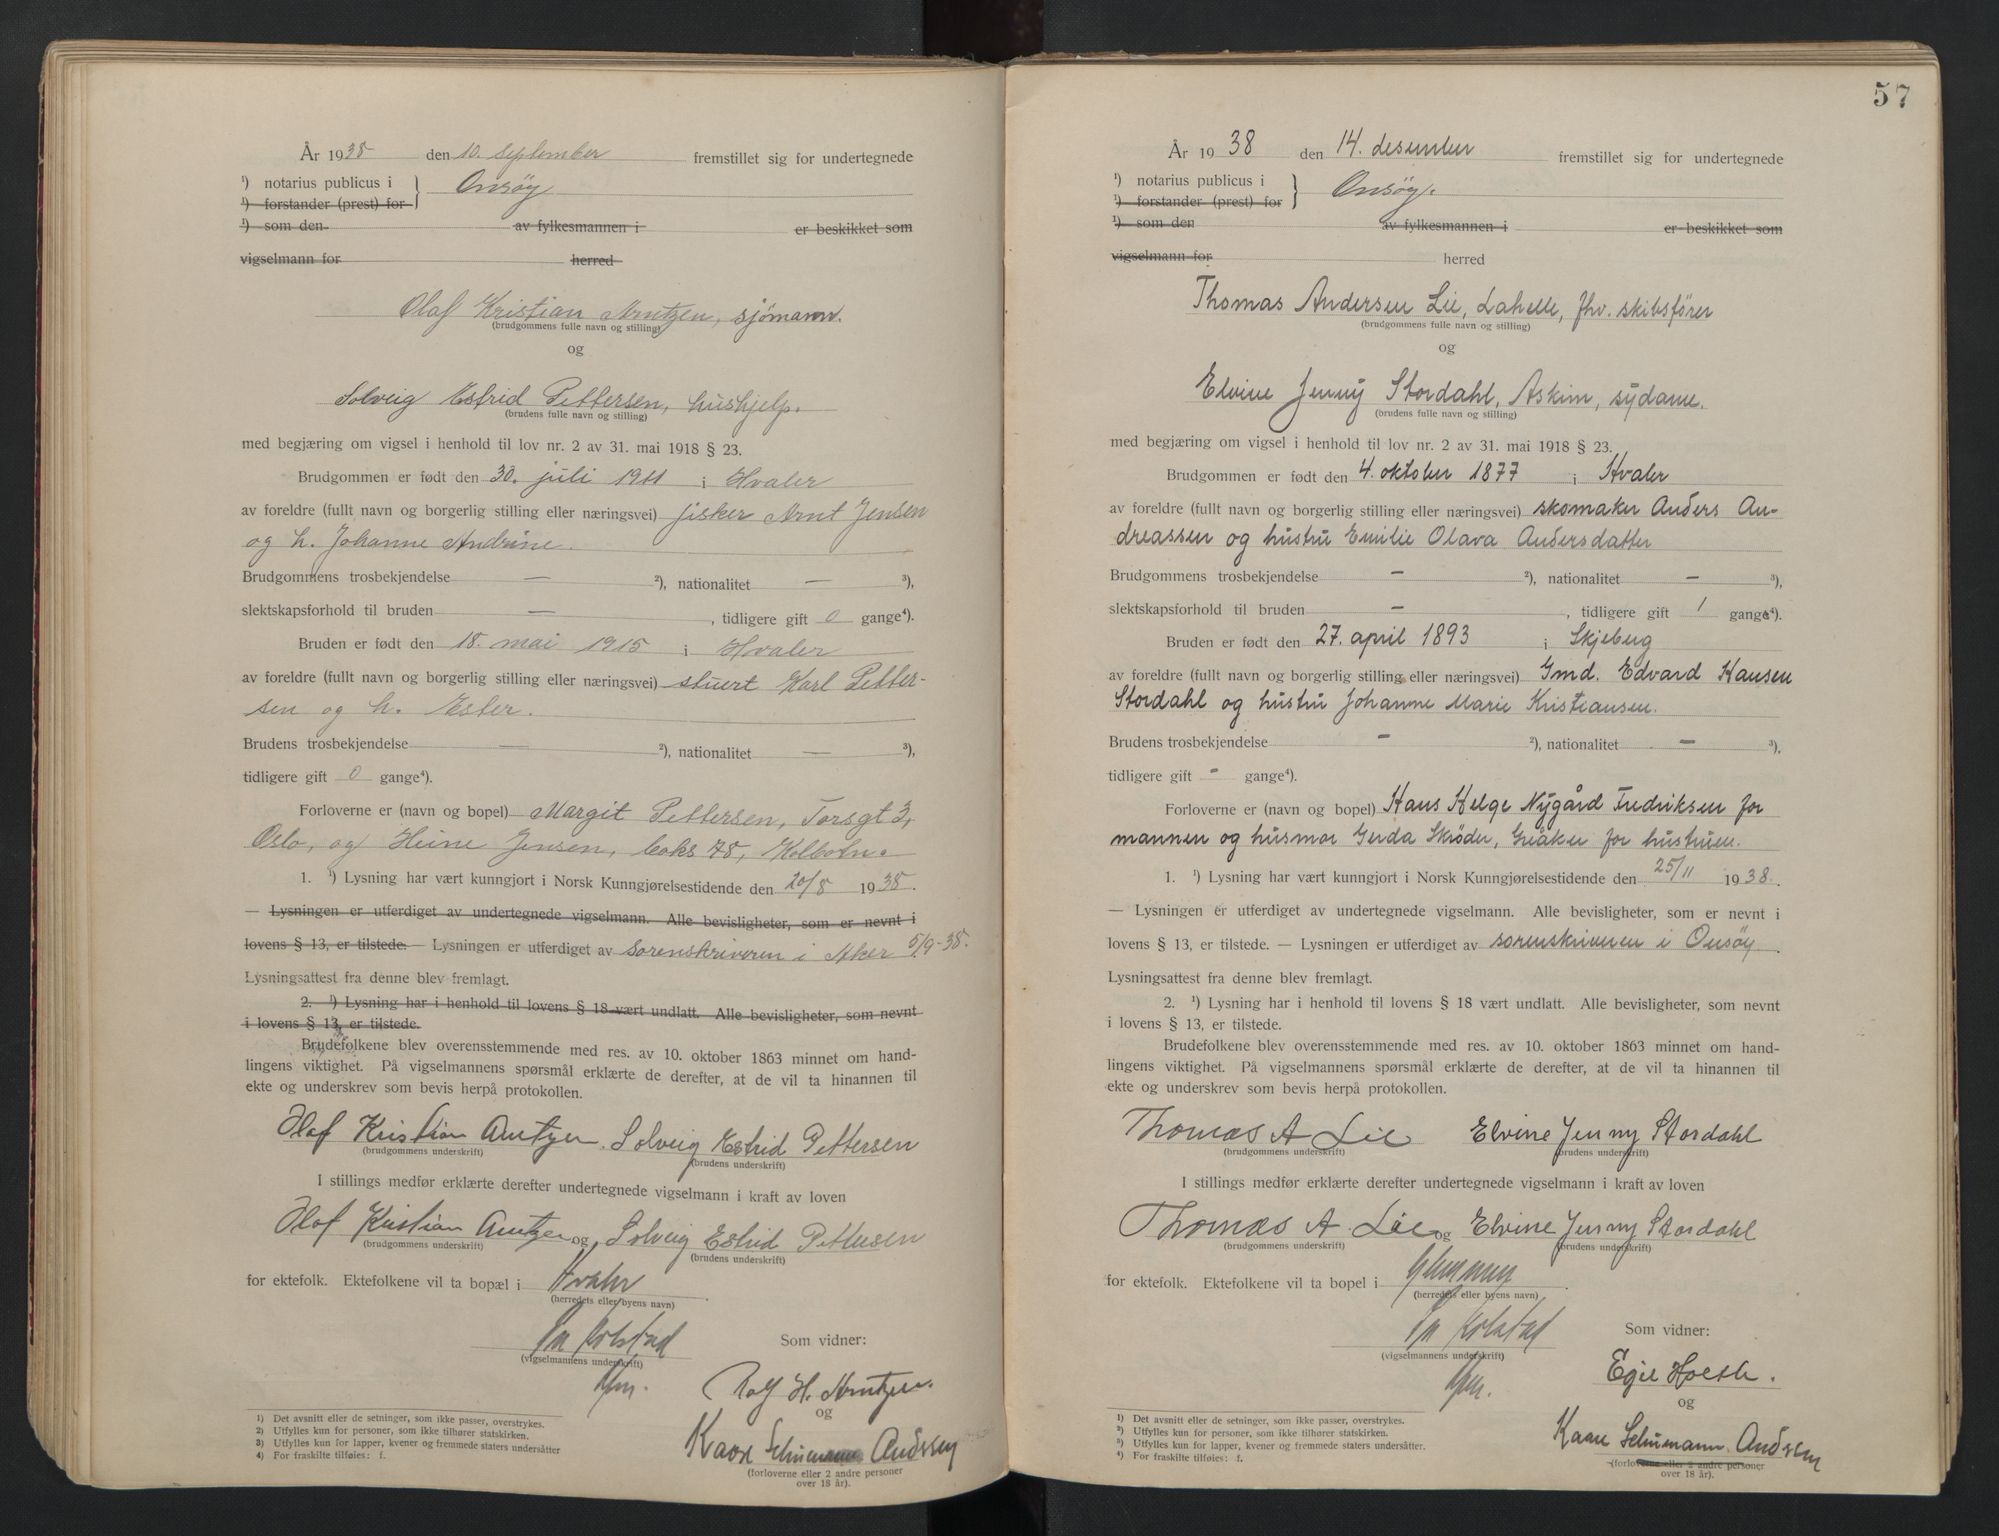 År 1938 den 10. september fremstillet sig for undertegnede
¹) notarius publicus i } Onsøy
¹) forstander (prest) for
¹) som den av fylkesmannen i er beskikket som
vigselmann for herred
Olaf Kristian Arntzen, sjømann.
(brudgommens fulle navn og stilling)
og
Solveig Estrid Pettersen, hushjelp.
(brudens fulle navn og stilling)
med begjæring om vigsel i henhold til lov nr. 2 av 31. mai 1918 § 23.
Brudgommen er født den 30. juli 1911 i Hvaler
av foreldre (fullt navn og borgerlig stilling eller næringsvei) fisker Arnt Jensen
og h. Johanne Andrine.
Brudgommens trosbekjendelse — ²), nationalitet — ³),
slektskapsforhold til bruden — , tidligere gift 0 gange⁴).
Bruden er født den 18. mai 1915 i Hvaler
av foreldre (fullt navn og borgerlig stilling eller næringsvei) stuert Karl Petter-
sen og h. Ester.
Brudens trosbekjendelse — ²), nationalitet — ³),
tidligere gift 0 gange⁴).
Forloverne er (navn og bopel) Margit Pettersen, Torsgt 3,
Oslo, og Heine Jensen, boks 78, Kolbotn.
1. ¹) Lysning har vært kunngjort i Norsk Kunngjørelsestidende den 20/8 1938.
— Lysningen er utferdiget av undertegnede vigselmann. Alle bevisligheter, som er nevnt i
lovens § 13, er tilstede. — Lysningen er utferdiget av sorenskriveren i Aker 5/9-38.
Lysningsattest fra denne blev fremlagt.
2. ¹) Lysning har i henhold til lovens § 18 vært undlatt. Alle bevisligheter, som nevnt
i lovens § 13, er tilstede.
Brudefolkene blev overensstemmende med res. av 10. oktober 1863 minnet om hand-
lingens viktighet. På vigselmannens spørsmål erklærte de derefter, at de vil ta hinannen til
ekte og underskrev som bevis herpå protokollen.
Olaf Kristian Arntzen. Solveig Estrid Pettersen
(brudgommens underskrift) (brudens underskrift)
I stillings medfør erklærte derefter undertegnede vigselmann i kraft av loven
Olaf Kristian Arntzen og Solveig Estrid Pettersen
(brudgommens underskrift) (brudens underskrift)
for ektefolk. Ektefolkene vil ta bopæl i Hvaler
(herredets eller byens navn)
Kolstad Som vidner:
(vigselmannens underskrift)
Rolf H. Arntzen.
og
Kaare Schumann Andersen
(forloverne eller 2 andre personer
over 18 år).
1) Det avsnitt eller de setninger, som ikke passer, overstrykes.
2) Utfylles kun for personer, som ikke tilhører statskirken.
3) Utfylles kun for lapper, kvener og fremmede staters undersåtter
4) For fraskilte tilføies: f.
57
År 1938 den 14. desember fremstillet sig for undertegnede
¹) notarius publicus i } Onsøy.
¹) forstander (prest) for
¹) som den av fylkesmannen i er beskikket som
vigselmann for herred
Thomas Andersen Lie, Lahelle, fhv. skibsfører
(brudgommens fulle navn og stilling)
og
Elvine Jenny Stordahl, Askim, sydame.
(brudens fulle navn og stilling)
med begjæring om vigsel i henhold til lov nr. 2 av 31. mai 1918 § 23.
Brudgommen er født den 4. oktober 1877 i Hvaler
av foreldre (fullt navn og borgerlig stilling eller næringsvei) skomaker Anders An-
dreassen og hustru Emilie Olava Andersdatter
Brudgommens trosbekjendelse — ²), nationalitet — ³),
slektskapsforhold til bruden — , tidligere gift 1 gange⁴).
Bruden er født den 27. april 1893 i Skjeberg
av foreldre (fullt navn og borgerlig stilling eller næringsvei) Gmd. Edvard Hansen
Stordahl og hustru Johanne Marie Kristiansen.
Brudens trosbekjendelse — ²), nationalitet — ³),
tidligere gift - gange⁴).
Forloverne er (navn og bopel) Hans Helge Nygård Fredriksen for
mannen og husmor Gerda Skrøder, Greåker for hustruen.
1. ¹) Lysning har vært kunngjort i Norsk Kunngjørelsestidende den 25/11 1938.
— Lysningen er utferdiget av undertegnede vigselmann. Alle bevisligheter, som er nevnt i
lovens § 13, er tilstede. — Lysningen er utferdiget av sorenskriveren i Onsøy.
Lysningsattest fra denne blev fremlagt.
2. ¹) Lysning har i henhold til lovens § 18 vært undlatt. Alle bevisligheter, som nevnt
i lovens § 13, er tilstede.
Brudefolkene blev overensstemmende med res. av 10. oktober 1863 minnet om hand-
lingens viktighet. På vigselmannens spørsmål erklærte de derefter, at de vil ta hinannen til
ekte og underskrev som bevis herpå protokollen.
Thomas A Lie Elvine Jenny Stordahl
(brudgommens underskrift) (brudens underskrift)
I stillings medfør erklærte derefter undertegnede vigselmann i kraft av loven
Thomas A. Lie og Elvine Jenny Stordahl
(brudgommens underskrift) (brudens underskrift)
for ektefolk. Ektefolkene vil ta bopel i Glemmen
(herredets eller byens navn)
Kolstad Som vidner:
(vigselmannens underskrift)
Egil Holth.
og
Kaare Schumann Andersen
(forloverne eller 2 andre personer
over 18 år).
1) Det avsnitt eller de setninger, som ikke passer, overstrykes.
2) Utfylles kun for personer, som ikke tilhører statskirken.
3) Utfylles kun for lapper, kvener og fremmede staters undersåtter.
4) For fraskilte tilføies: f.